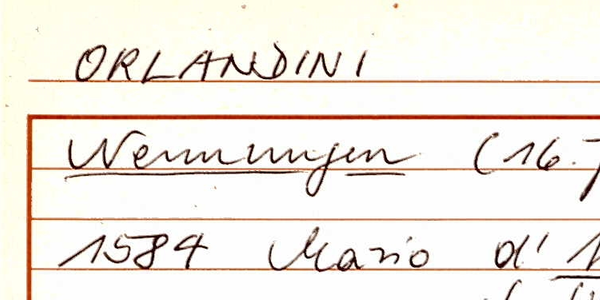 ORLANDINI
Nennungen (16.
1584 Mario d'